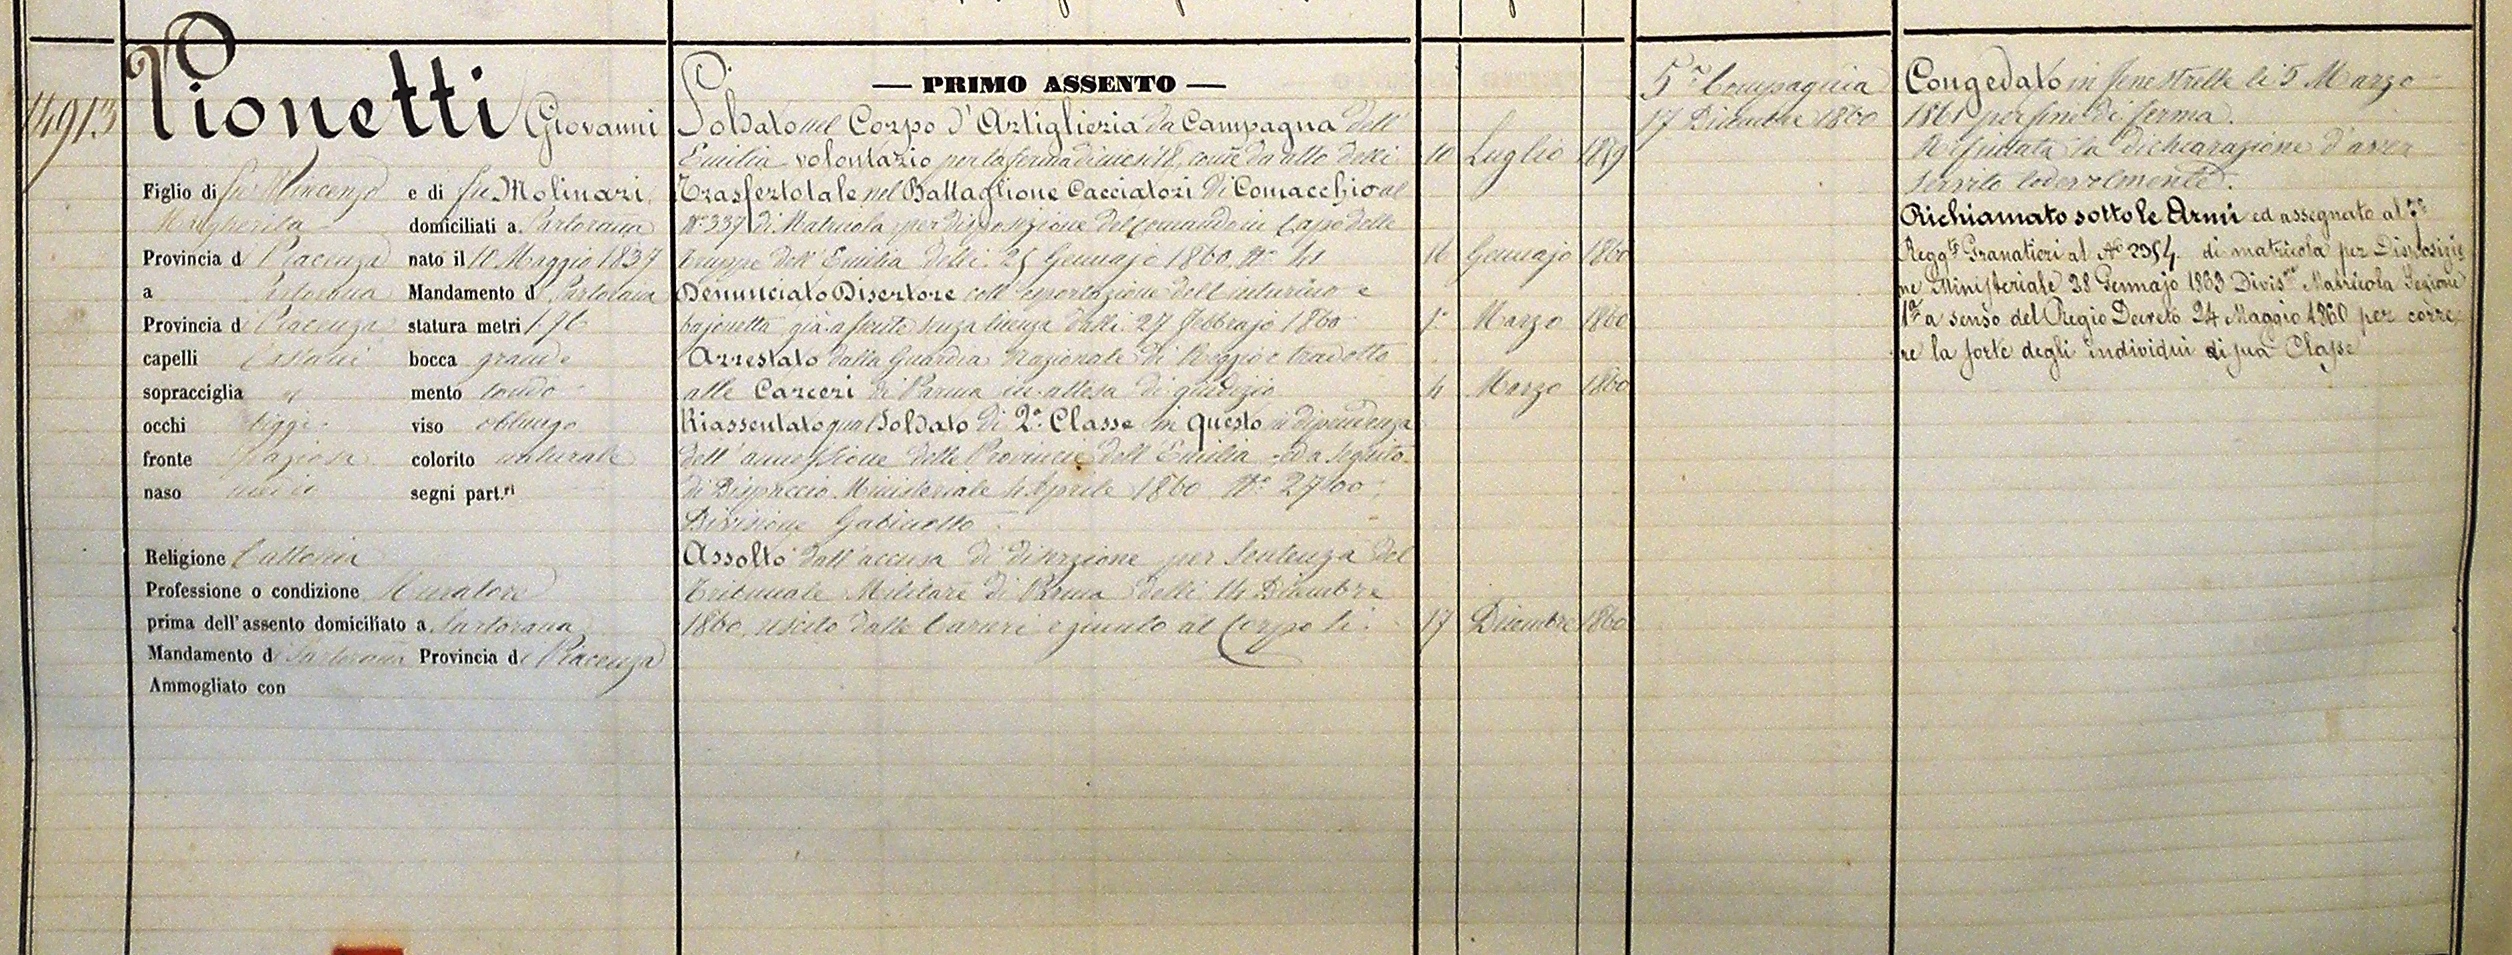 14913
Pionetti Giovanni
Figlio di fu Vincenzo e di fu Molinari
Margherita domiciliati a
Provincia di Piacenza nato il 10 Maggio 1837
a Mandamento di
Provincia di Piacenza statura metri 1.76
capelli bocca grande
sopracciglia mento tondo
occhi bigi viso oblungo
fronte colorito naturale
naso medio segni part.ri
Religione Cattolica
Professione o condizione Muratore
prima dell'assento domiciliato a
Mandamento di Provincia di Piacenza
Ammogliato con
— PRIMO ASSENTO —
Soldato nel Corpo d'Artiglieria da Campagna dell'
Emilia volontario per la ferma di mesi 18, come da atto delli 10 Luglio 1859
Trasferto tale nel Battaglione Cacciatori di Comacchio al
N° 337 di Matricola per disposizione del Comando in Capo delle
Truppe dell'Emilia delli 25 Gennajo 1860 N° 41 16 Gennajo 1860
Denunciato Disertore coll'esportazione dell'
bajonetta già assente senza licenza dalli 27 Febbrajo 1860 1° Marzo 1860
Arrestato dalla Guardia Nazionale di Reggio e tradotto
alle Carceri di Parma in attesa di giudizio 4 Marzo 1860
Riassentato qual Soldato di 2a Classe in questo in dipendenza
dell'annessione delle Provincie dell'Emilia ed a seguito
di Dispaccio Ministeriale 4 Aprile 1860 N° 2700
Divisione Gabinetto
Assolto dall'accusa di diserzione per Sentenza del
Tribunale Militare di Parma delli 14 Dicembre
1860, uscito dalle Carceri e giunto al Corpo li 17 Dicembre 1860
5a Compagnia
17 Dicembre 1860
Congedato in Fenestrelle li 5 Marzo
1861 per fine di ferma.
Rifiutata la dichiarazione d'aver
servito lodevolmente.
Richiamato sotto le Armi ed assegnato al
Regg.to Granatieri al N° 2354 di matricola per Disposizio
ne Ministeriale 28 Gennajo 1863 Divis.ne Matricola Sezione
1a a senso del Regio Decreto 24 Maggio 1860 per corre
re la sorte degli individui di sua Classe